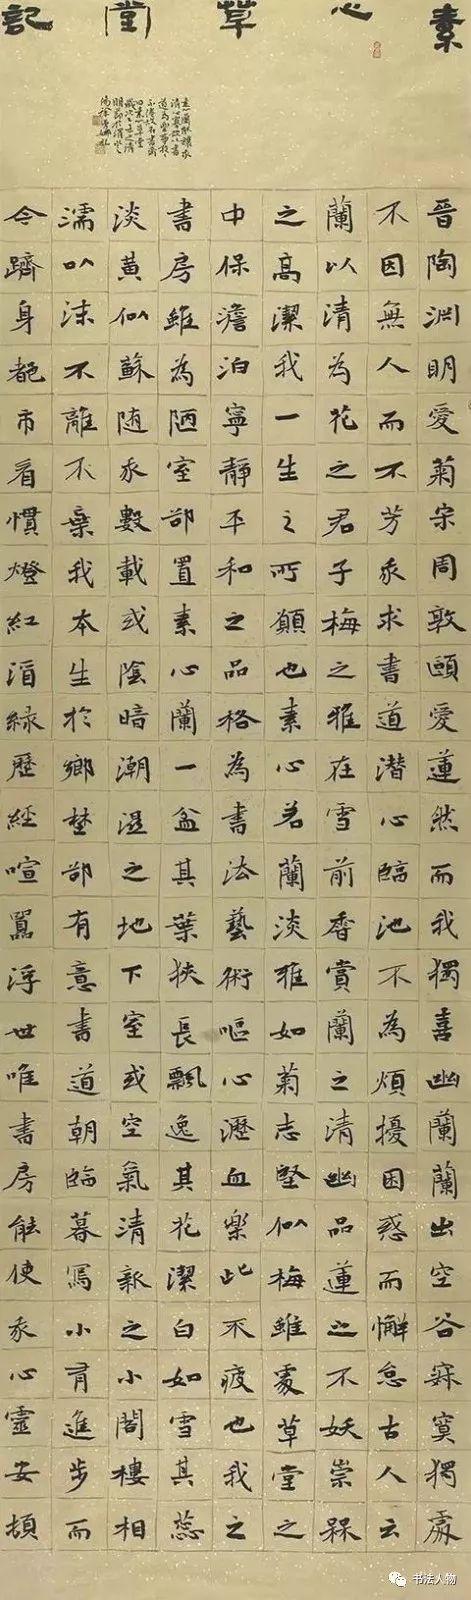 素心草堂記
晉陶淵明愛菊宋周敦頤愛蓮然而我獨喜幽蘭蘭出空谷寂寞獨處
不因無人而不芳余求書道潛心臨池不為煩擾困惑而懈怠古人云
蘭以清為花之君子梅之雅在雪前香賞蘭之清幽品蓮之不妖崇槑
之高潔我一生之所願也素心若蘭淡雅如菊志堅似梅雖處草堂之
中保澹泊寧靜平和之品格為書法藝術嘔心瀝血樂此不疲也我之
書房雖為陋室卻置素心蘭一盆其葉狹長飄逸其花潔白如雪其蕊
淡黃似蘇随余數載或陰暗潮濕之地下室或空氣清新之小閣樓相
濡以沫不離不棄我本生於鄉埜卻有意書道朝臨暮寫小有進步而
今躋身都市看慣燈紅酒綠歷經喧囂浮世唯書房能使余心靈安頓
书法人物